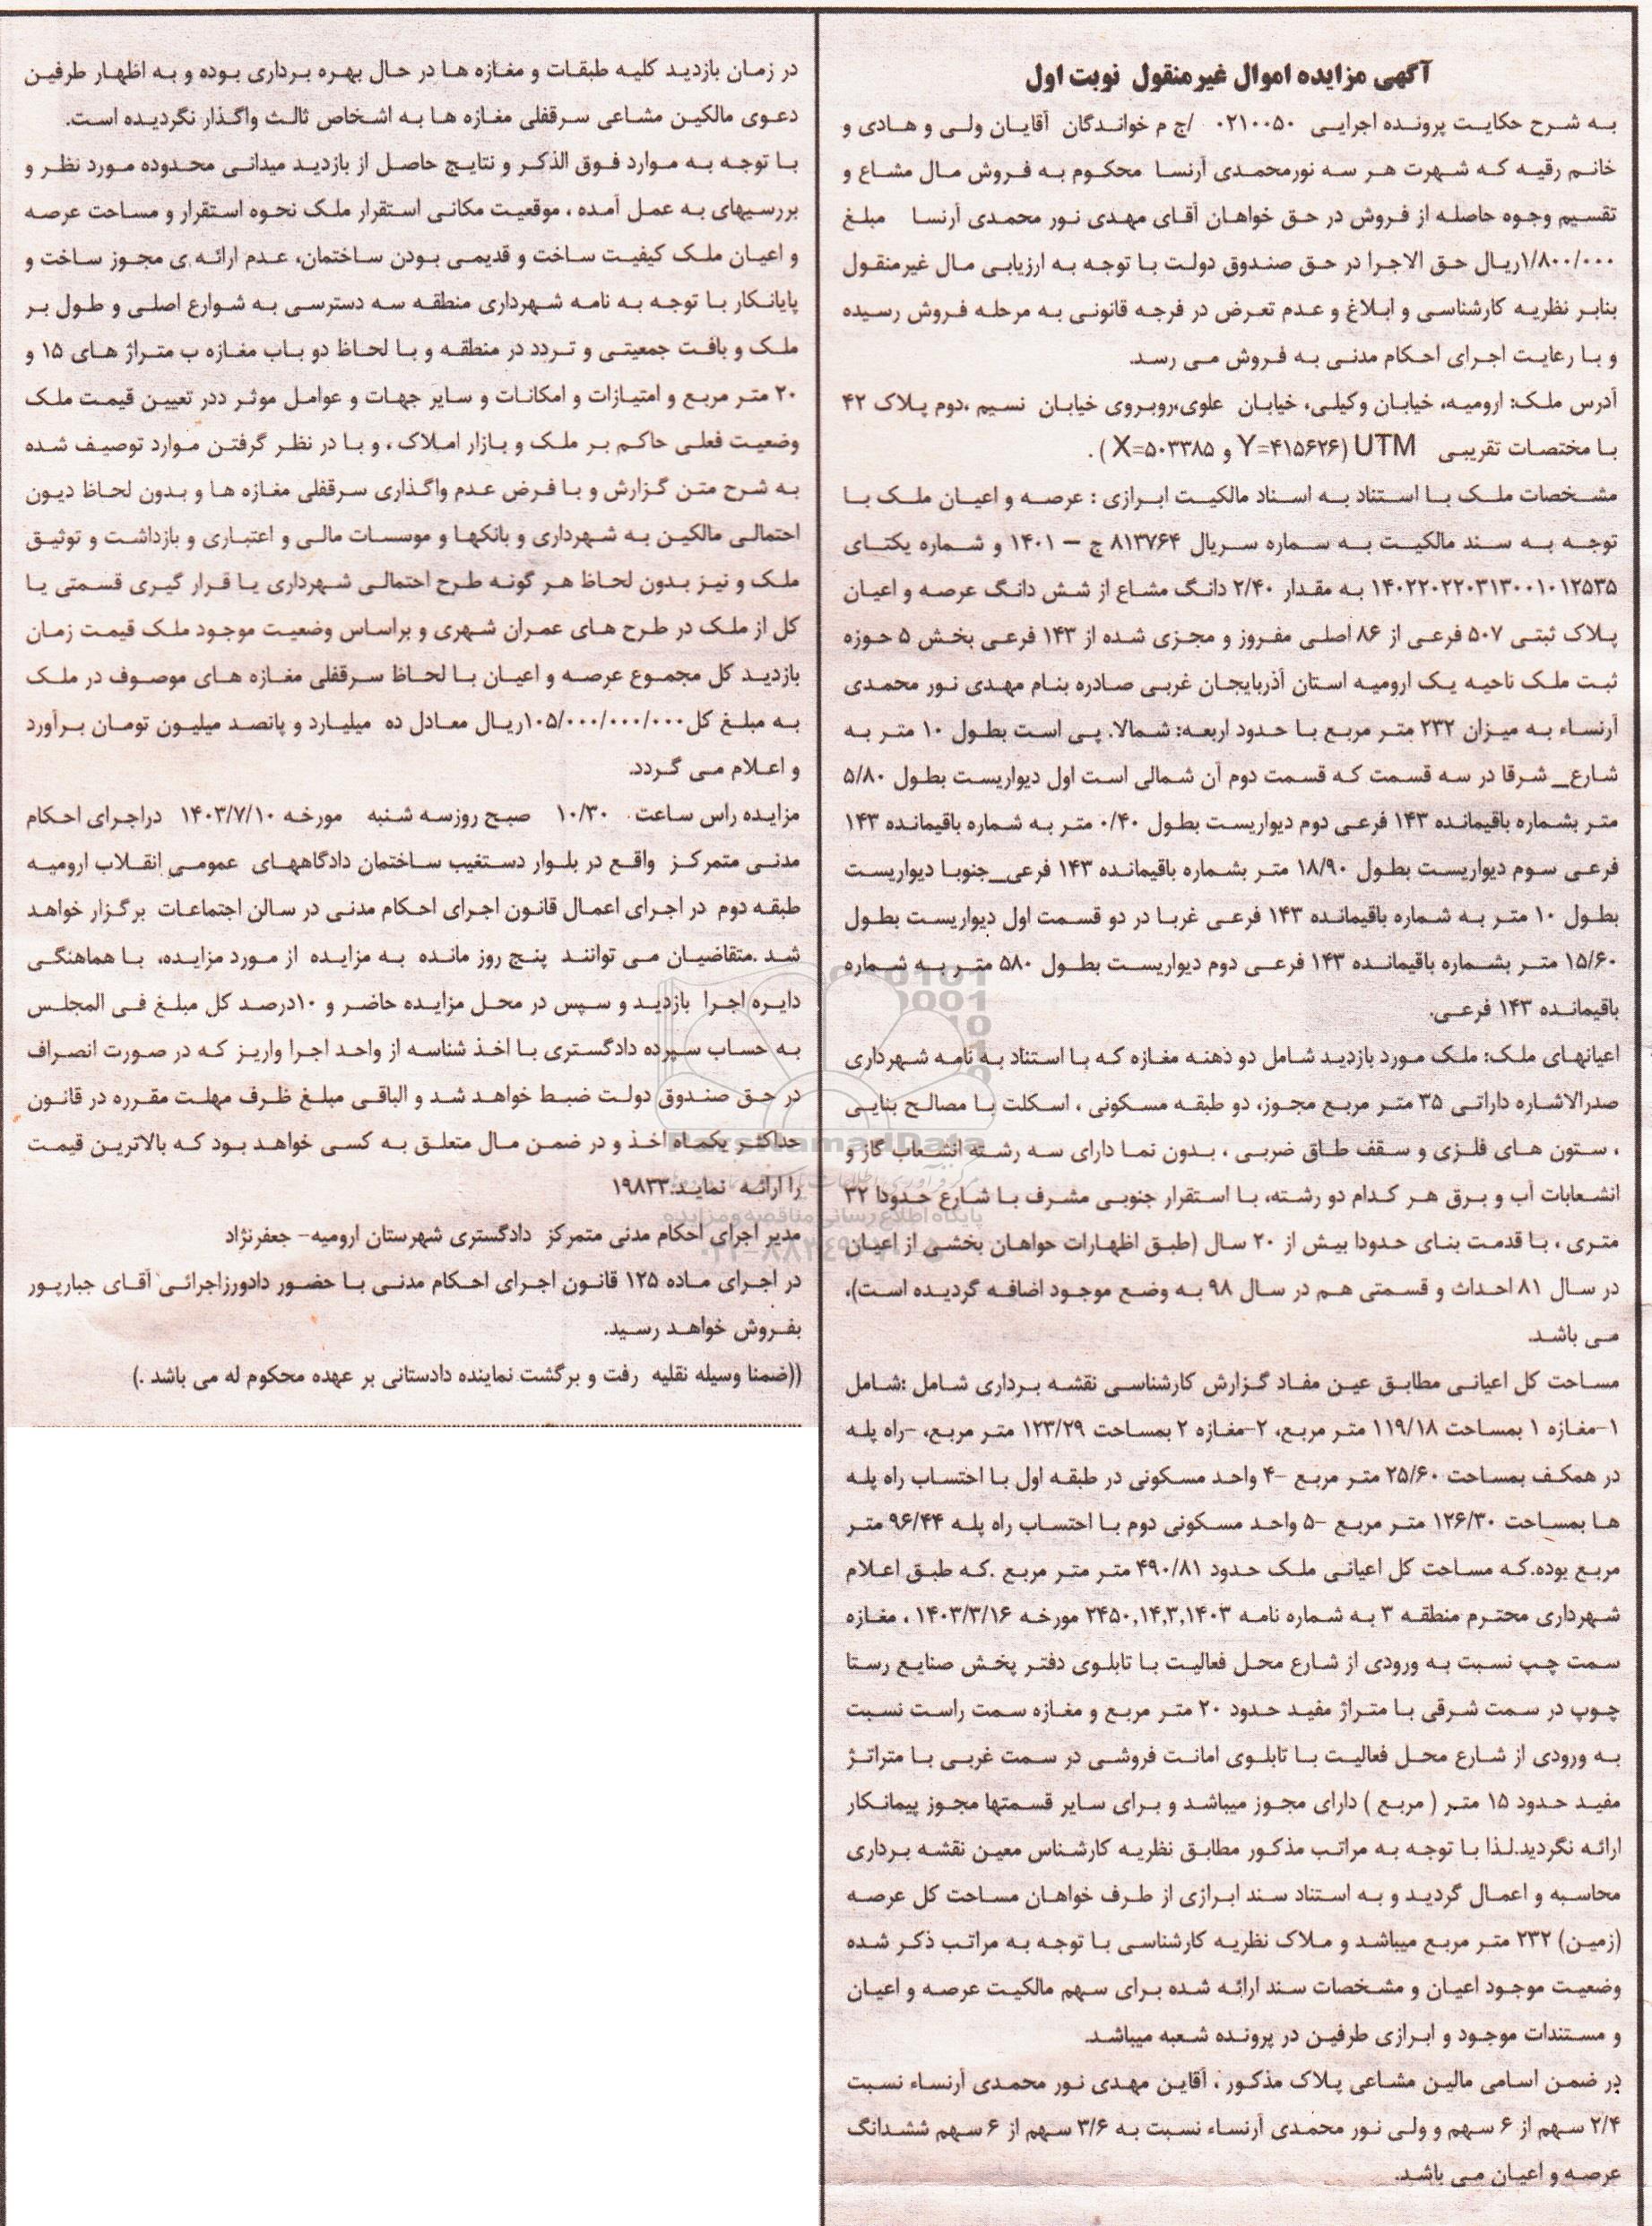 آگهی مزایده اموال غیرمنقول نوبت اول
به شرح حکایت پرونده اجرایی ۰۲۱۰۰۵۰ /ج م خواندگان آقایان ولی و هادی و
خانم رقیه که شهرت هر سه نورمحمدی آرنسا محکوم به فروش مال مشاع و
تقسیم وجوه حاصله از فروش در حق خواهان آقای مهدی نور محمدی آرنسا مبلغ
۱/۸۰۰/۰۰۰ریال حق الاجرا در حق صندوق دولت با توجه به ارزیابی مال غیرمنقول
بنابر نظریه کارشناسی و ابلاغ و عدم تعرض در فرجه قانونی به مرحله فروش رسیده
و با رعایت اجرای احکام مدنی به فروش می رسد.
آدرس ملک: ارومیه، خیابان وکیلی، خیابان علوی،روبروی خیابان نسیم ،دوم پلاک ۴۲
با مختصات تقریبی UTM (Y=۴۱۵۶۲۶ و X=۵۰۳۳۸۵ ) .
مشخصات ملک با استناد به اسناد مالکیت ابرازی : عرصه و اعیان ملک با
توجه به سند مالکیت به شماره سریال ۸۱۳۷۶۴ ج – ۱۴۰۱ و شماره یکتای
۱۴۰۲۲۰۲۲۰۳۱۳۰۰۱۰۱۲۵۳۵ به مقدار ۲/۴۰ دانگ مشاع از شش دانگ عرصه و اعیان
پلاک ثبتی ۵۰۷ فرعی از ۸۶ اصلی مفروز و مجزی شده از ۱۴۳ فرعی بخش ۵ حوزه
ثبت ملک ناحیه یک ارومیه استان آذربایجان غربی صادره بنام مهدی نور محمدی
آرنساء به میزان ۲۳۲ متر مربع با حدود اربعه: شمالا. پی است بطول ۱۰ متر به
شارع_ شرقا در سه قسمت که قسمت دوم آن شمالی است اول دیواریست بطول ۵/۸۰
متر بشماره باقیمانده ۱۴۳ فرعی دوم دیواریست بطول ۰/۴۰ متر به شماره باقیمانده ۱۴۳
فرعی سوم دیواریست بطول ۱۸/۹۰ متر بشماره باقیمانده ۱۴۳ فرعی_جنوبا دیواریست
بطول ۱۰ متر به شماره باقیمانده ۱۴۳ فرعی غربا در دو قسمت اول دیواریست بطول
۱۵/۶۰ متر بشماره باقیمانده ۱۴۳ فرعی دوم دیواریست بطول ۵۸۰ متر به شماره
باقیمانده ۱۴۳ فرعی.
اعیانهای ملک: ملک مورد بازدید شامل دو دهنه مغازه که با استناد به نامه شهرداری
صدرالاشاره داراتی ۳۵ متر مربع مجوز، دو طبقه مسکونی ، اسکلت با مصالح بنایی
، ستون های فلزی و سقف طاق ضربی ، بدون نما دارای سه رشته انشعاب گاز و
انشعابات آب و برق هر کدام دو رشته، با استقرار جنوبی مشرف با شارع حدودا ۳۲
متری ، با قدمت بنای حدودا بیش از ۲۰ سال (طبق اظهارات خواهان بخشی از اعیان
در سال ۸۱ احداث و قسمتی هم در سال ۹۸ به وضع موجود اضافه گردیده است)،
می باشد.
مساحت کل اعیانی مطابق عین مفاد گزارش کارشناسی نقشه برداری شامل :شامل
۱-مغازه ۱ بمساحت ۱۱۹/۱۸ متر مربع، ۲-مغازه ۲ بمساحت ۱۲۳/۲۹ متر مربع، -راه پله
در همکف بمساحت ۲۵/۶۰ متر مربع -۴ واحد مسکونی در طبقه اول با احتساب راه پله
ها بمساحت ۱۲۶/۳۰ متر مربع -۵ واحد مسکونی دوم با احتساب راه پله ۹۶/۴۴ متر
مربع بوده.که مساحت کل اعیانی ملک حدود ۴۹۰/۸۱ متر متر مربع .که طبق اعلام
شهرداری محترم منطقه ۳ به شماره نامه ۲۴۵۰,۱۴,۳,۱۴۰۳ مورخه ۱۴۰۳/۳/۱۶ ، مغازه
سمت چپ نسبت به ورودی از شارع محل فعالیت با تابلوی دفتر پخش صنایع رستا
چوپ در سمت شرقی با متراژ مفید حدود ۲۰ متر مربع و مغازه سمت راست نسبت
به ورودی از شارع محل فعالیت با تابلوی امانت فروشی در سمت غربی با متراتژ
مفید حدود ۱۵ متر ( مربع ) دارای مجوز میباشد و برای سایر قسمتها مجوز پیمانکار
ارائه نگردید.لذا با توجه به مراتب مذکور مطابق نظریه کارشناس معین نقشه برداری
محاسبه و اعمال گردید و به استناد سند ابرازی از طرف خواهان مساحت کل عرصه
(زمین) ۲۳۲ متر مربع میباشد و ملاک نظریه کارشناسی با توجه به مراتب ذکر شده
وضعیت موجود اعیان و مشخصات سند ارائه شده برای سهم مالکیت عرصه و اعیان
و مستندات موجود و ابرازی طرفین در پرونده شعبه میباشد.
در ضمن اسامی مالین مشاعی پلاک مذکور ، آقاین مهدی نور محمدی آرنساء نسبت
۲/۴ سهم از ۶ سهم و ولی نور محمدی آرنساء نسبت به ۳/۶ سهم از ۶ سهم ششدانگ
عرصه و اعیان می باشد.
در زمان بازدید کلیه طبقات و مغازه ها در حال بهره برداری بوده و به اظهار طرفین
دعوی مالکین مشاعی سرقفلی مغازه ها به اشخاص ثالث واگذار نگردیده است.
با توجه به موارد فوق الذکر و نتایج حاصل از بازدید میدانی محدوده مورد نظر و
بررسیهای به عمل آمده ، موقعیت مکانی استقرار ملک نحوه استقرار و مساحت عرصه
و اعیان ملک کیفیت ساخت و قدیمی بودن ساختمان، عدم ارائه ی مجوز ساخت و
پایانکار با توجه به نامه شهرداری منطقه سه دسترسی به شوارع اصلی و طول بر
ملک و بافت جمعیتی و تردد در منطقه و با لحاظ دو باب مغازه ب متراژ های ۱۵ و
۲۰ متر مربع و امتیازات و امکانات و سایر جهات و عوامل موثر ددر تعیین قیمت ملک
وضعیت فعلی حاکم بر ملک و بازار املاک ، و با در نظر گرفتن موارد توصیف شده
به شرح متن گزارش و با فرض عدم واگذاری سرقفلی مغازه ها و بدون لحاظ دیون
احتمالی مالکین به شهرداری و بانکها و موسسات مالی و اعتباری و بازداشت و توثیق
ملک و نیز بدون لحاظ هر گونه طرح احتمالی شهرداری یا قرار گیری قسمتی یا
کل از ملک در طرح های عمران شهری و براساس وضعیت موجود ملک قیمت زمان
بازدید کل مجموع عرصه و اعیان با لحاظ سرقفلی مغازه های موصوف در ملک
به مبلغ کل۱۰۵/۰۰۰/۰۰۰/۰۰۰ریال معادل ده میلیارد و پانصد میلیون تومان برآورد
و اعلام می گردد.
مزایده راس ساعت ۱۰/۳۰ صبح روزسه شنبه مورخه ۱۴۰۳/۷/۱۰ دراجرای احکام
مدنی متمرکز واقع در بلوار دستغیب ساختمان دادگاههای عمومی انقلاب ارومیه
طبقه دوم در اجرای اعمال قانون اجرای احکام مدنی در سالن اجتماعات برگزار خواهد
شد .متقاضیان می توانند پنج روز مانده به مزایده از مورد مزایده، با هماهنگی
دایره اجرا بازدید و سپس در محل مزایده حاضر و ۱۰درصد کل مبلغ فی المجلس
به حساب سپرده دادگستری با اخذ شناسه از واحد اجرا واریز که در صورت انصراف
در حق صندوق دولت ضبط خواهد شد و الباقی مبلغ ظرف مهلت مقرره در قانون
حداکثر یکماه اخذ و در ضمن مال متعلق به کسی خواهد بود که بالاترین قیمت
را ارائه نماید.۱۹۸۳۳
مدیر اجرای احکام مدنی متمرکز دادگستری شهرستان ارومیه- جعفرنژاد
در اجرای ماده ۱۲۵ قانون اجرای احکام مدنی با حضور دادورزاجرائی آقای جبارپور
بفروش خواهد رسید.
((ضمنا وسیله نقلیه رفت و برگشت نماینده دادستانی بر عهده محکوم له می باشد .)
ParsNamadData
پایگاه اطلاع رسانی مناقصه و مزایده